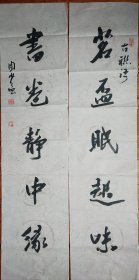 茗盃眠起味
書卷静中缘